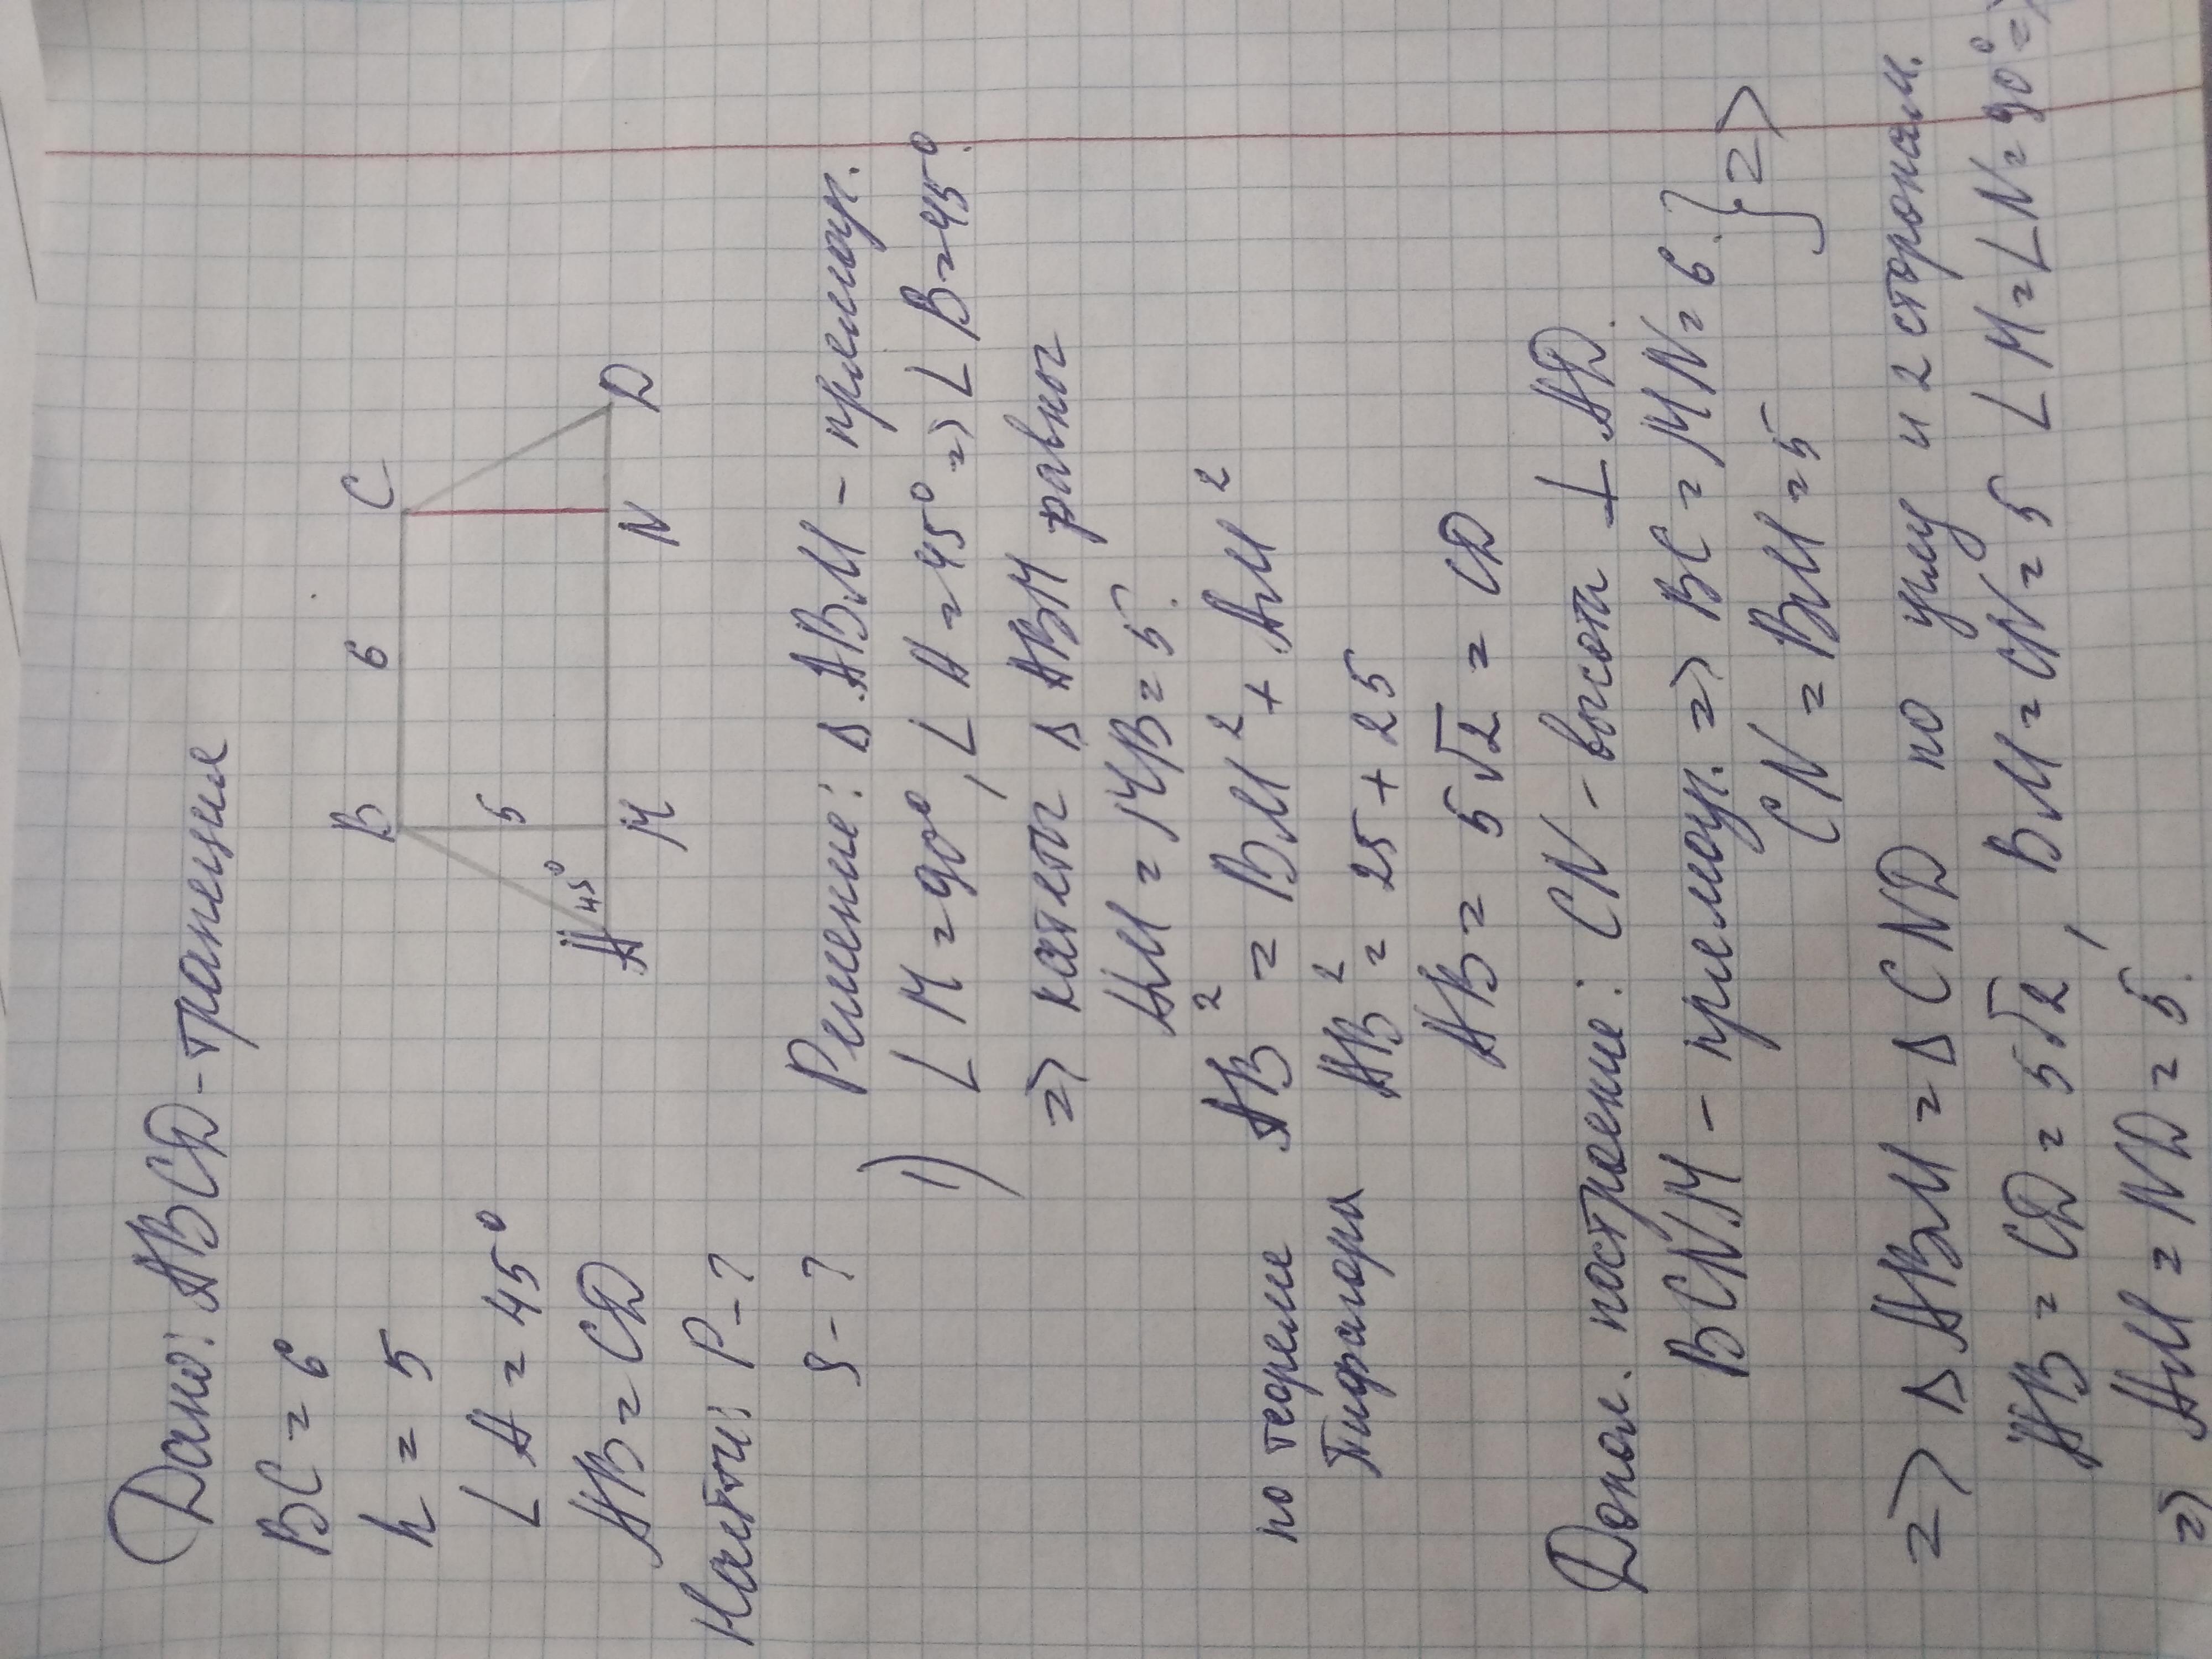 Дано: ABCD - трапеция
BC = 6
h = 5
∠A = 45°
AB = CD
Найти: P - ?
S - ?
B 6 C
5
45°
A M N D
Решение: Δ ABM - прямоуг.
1) ∠M = 90°, ∠A = 45° => ∠B = 45°.
=> катеты Δ ABM равны
AM = MB = 5.
AB² = BM² + AM²
по теореме
Пифагора AB² = 25 + 25
AB = 5√2 = CD
Допол. построение: CN - высота ⊥ AD.
BCNM - прямоуг. => BC = MN = 6. } =>
CN = BM = 5
=> Δ ABM = Δ CND по углу и 2 сторонам.
AB = CD = 5√2, BM = CN = 5 ∠M = ∠N = 90° =>
=> AM = ND = 5.